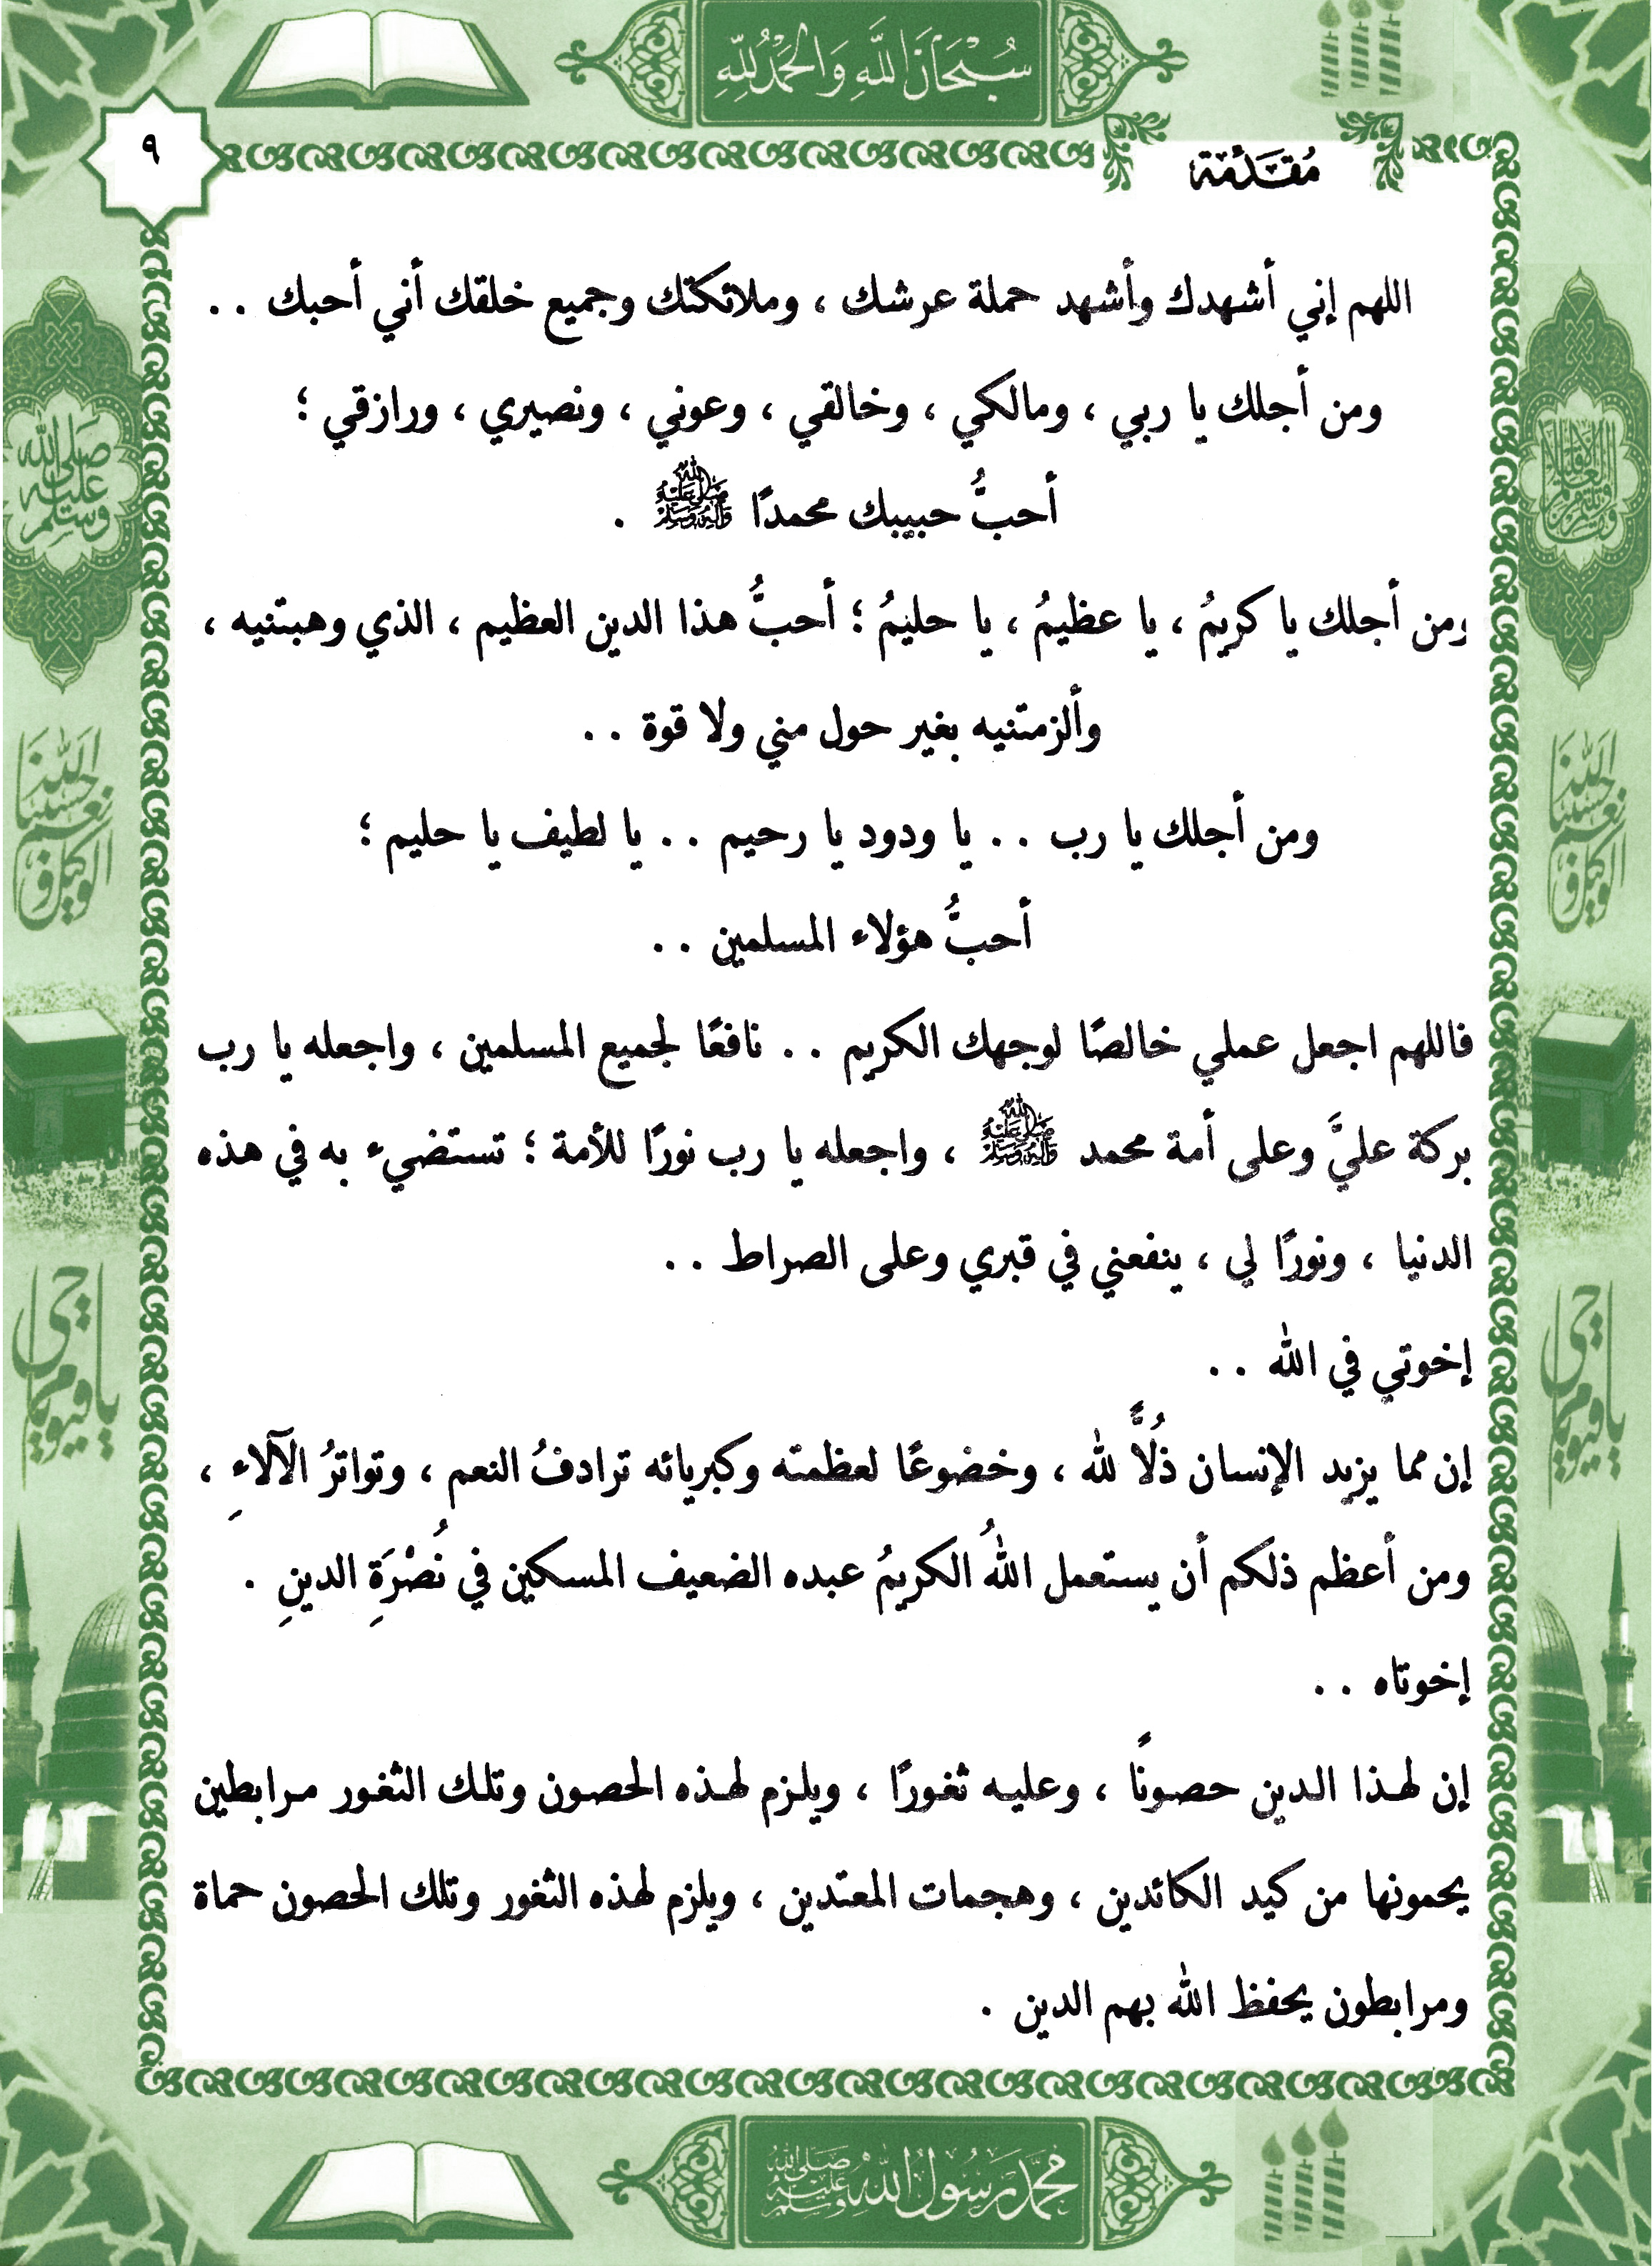 سُبْحَانَ اللَّهِ وَالْحَمْدُ لِلَّهِ
٩
مُقَدِّمَة
اللهم إني أشهدك وأشهد حملة عرشك ، وملائكتك وجميع خلقك أني أحبك . .
ومن أجلك يا ربي ، ومالكي ، وخالقي ، وعوني ، ونصيري ، ورازقي ؛
أحبُّ حبيبك محمدًا ﷺ .
ومن أجلك يا كريمُ ، يا عظيمُ ، يا حليمُ ؛ أحبُّ هذا الدين العظيم ، الذي وهبتنيه ،
وألزمتنيه بغير حول مني ولا قوة . .
ومن أجلك يا رب . . يا ودود يا رحيم . . يا لطيف يا حليم ؛
أحبُّ هؤلاء المسلمين . .
فاللهم اجعل عملي خالصًا لوجهك الكريم . . نافعًا لجميع المسلمين ، واجعله يا رب
بركة عليَّ وعلى أمة محمد ﷺ ، واجعله يا رب نورًا للأمة ؛ تستضيء به في هذه
الدنيا ، ونورًا لي ، ينفعني في قبري وعلى الصراط . .
إخوتي في الله . .
إن مما يزيد الإنسان ذُلًّا لله ، وخضوعًا لعظمته وكبريائه ترادفُ النعم ، وتواترُ الآلاءِ ،
ومن أعظم ذلكم أن يستعمل اللهُ الكريمُ عبده الضعيف المسكين في نُصْرَةِ الدينِ .
إخوتاه . .
إن لهذا الدين حصونًا ، وعليه ثغورًا ، ويلزم لهذه الحصون وتلك الثغور مرابطين
يحمونها من كيد الكائدين ، وهجمات المعتدين ، ويلزم لهذه الثغور وتلك الحصون حماة
ومرابطون يحفظ الله بهم الدين .
صلى الله عليه وسلم
حسبنا الله ونعم الوكيل
حسبنا الله ونعم الوكيل
يا حي يا قيوم
يا حي يا قيوم
محمد رسول الله صلى الله عليه وسلم